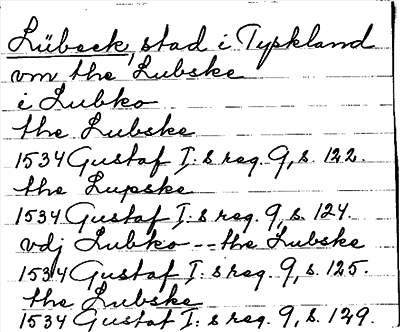 Lübeck, stad i Tyskland
vm the Lubske
i Lubko
the Lubske
1534 Gustaf I:s reg. 9, s. 122.
the Lupske
1534 Gustaf I:s reg. 9, s. 124.
vdj Lubko -- the Lubske
1534 Gustaf I:s reg. 9, s. 125.
the Lubske
1534 Gustaf I:s reg. 9, s. 129.